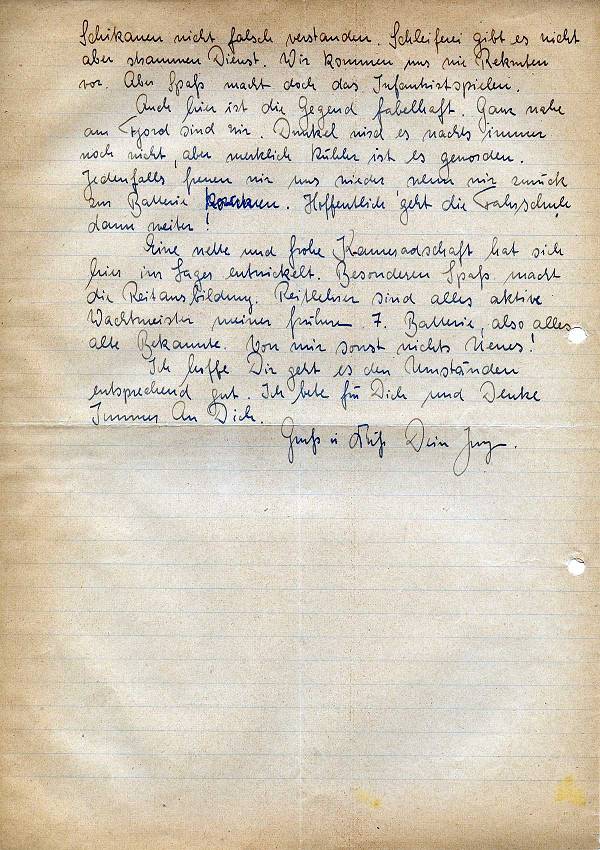 Schikanen nicht falsch verstanden. Schleiferei gibt es nicht
aber strammen Dienst. Wir kommen uns wie Rekruten
vor. Aber Spaß macht doch das Infantristspielen.
Auch hier ist die Gegend fabelhaft. Ganz nahe
am Fjord sind wir. Dunkel wird es nachts immer
noch nicht, aber merklich kühler ist es geworden.
Jedenfalls freuen wir uns wieder wenn wir zurück
zur Batterie kommen. Hoffentlich geht die Fahrschule
dann weiter!
Eine nette und frohe Kameradschaft hat sich
hier im Lager entwickelt. Besonderen Spaß macht
die Reitausbildung. Reitlehrer sind alles aktive
Wachtmeister meiner frühren 7. Batterie, also alles
alte Bekannte. Von mir sonst nichts Neues!
Ich hoffe Dir geht es den Umständen
entsprechend gut. Ich bete für Dich und Denke
Immer An Dich.
Gruß u Kuß Dein